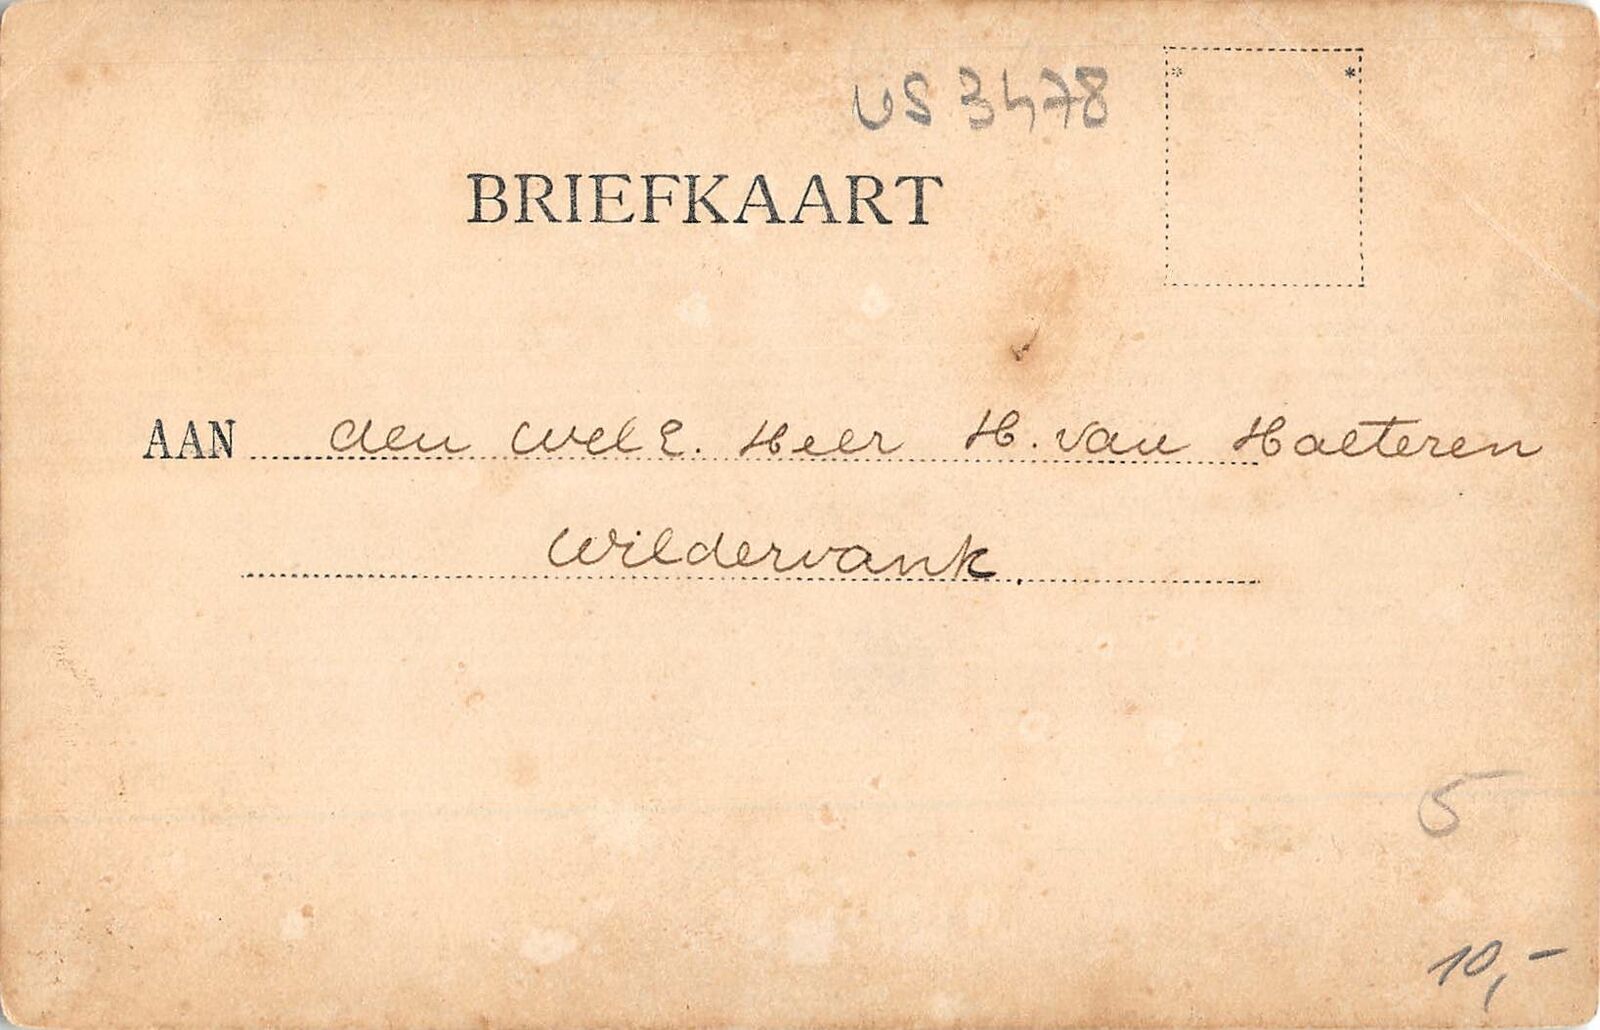 US 3478
BRIEFKAART
AAN den Wel E. Heer H. van Halteren
Wildervank.
5
10,-